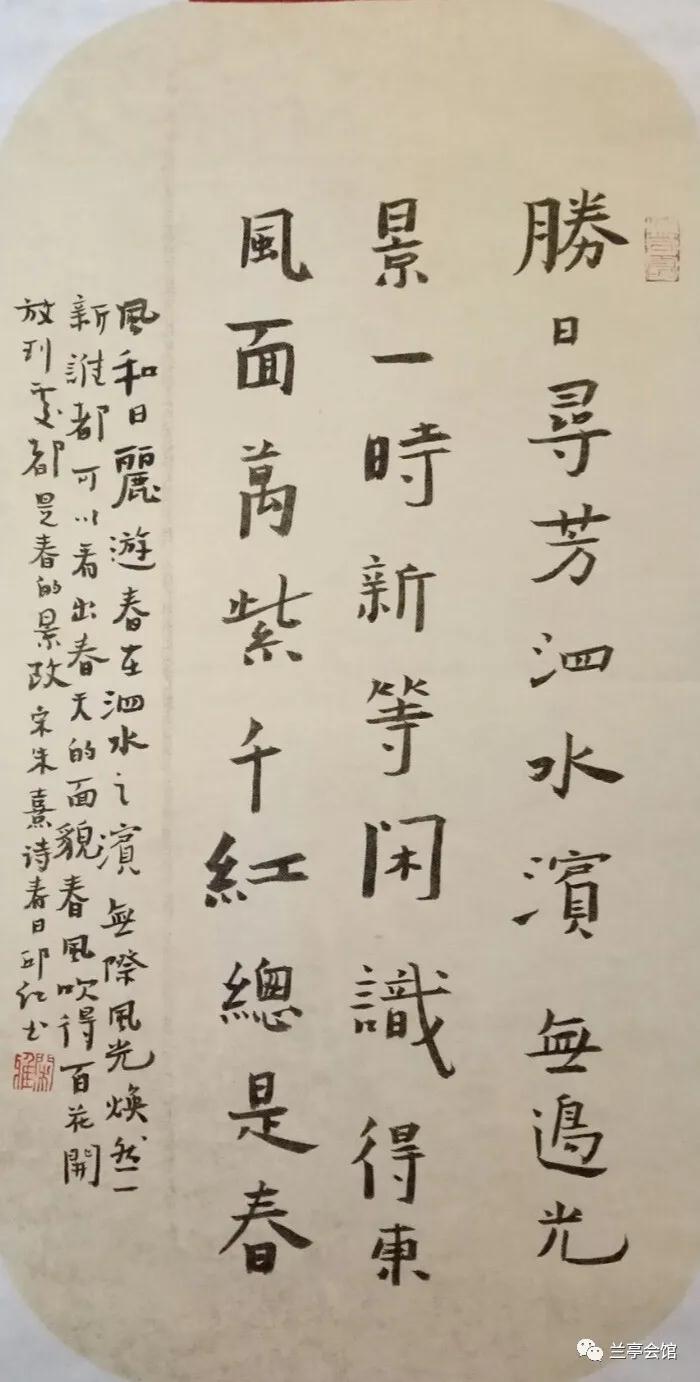 勝日尋芳泗水濱無邊光
景一時新等闲識得東
風面萬紫千紅總是春
風和日麗遊春在泗水之濱無際風光煥然一
新誰都可以看出春天的面貌春風吹得百花開
放到處都是春的景致宋朱熹诗春日邱红书
兰亭会馆